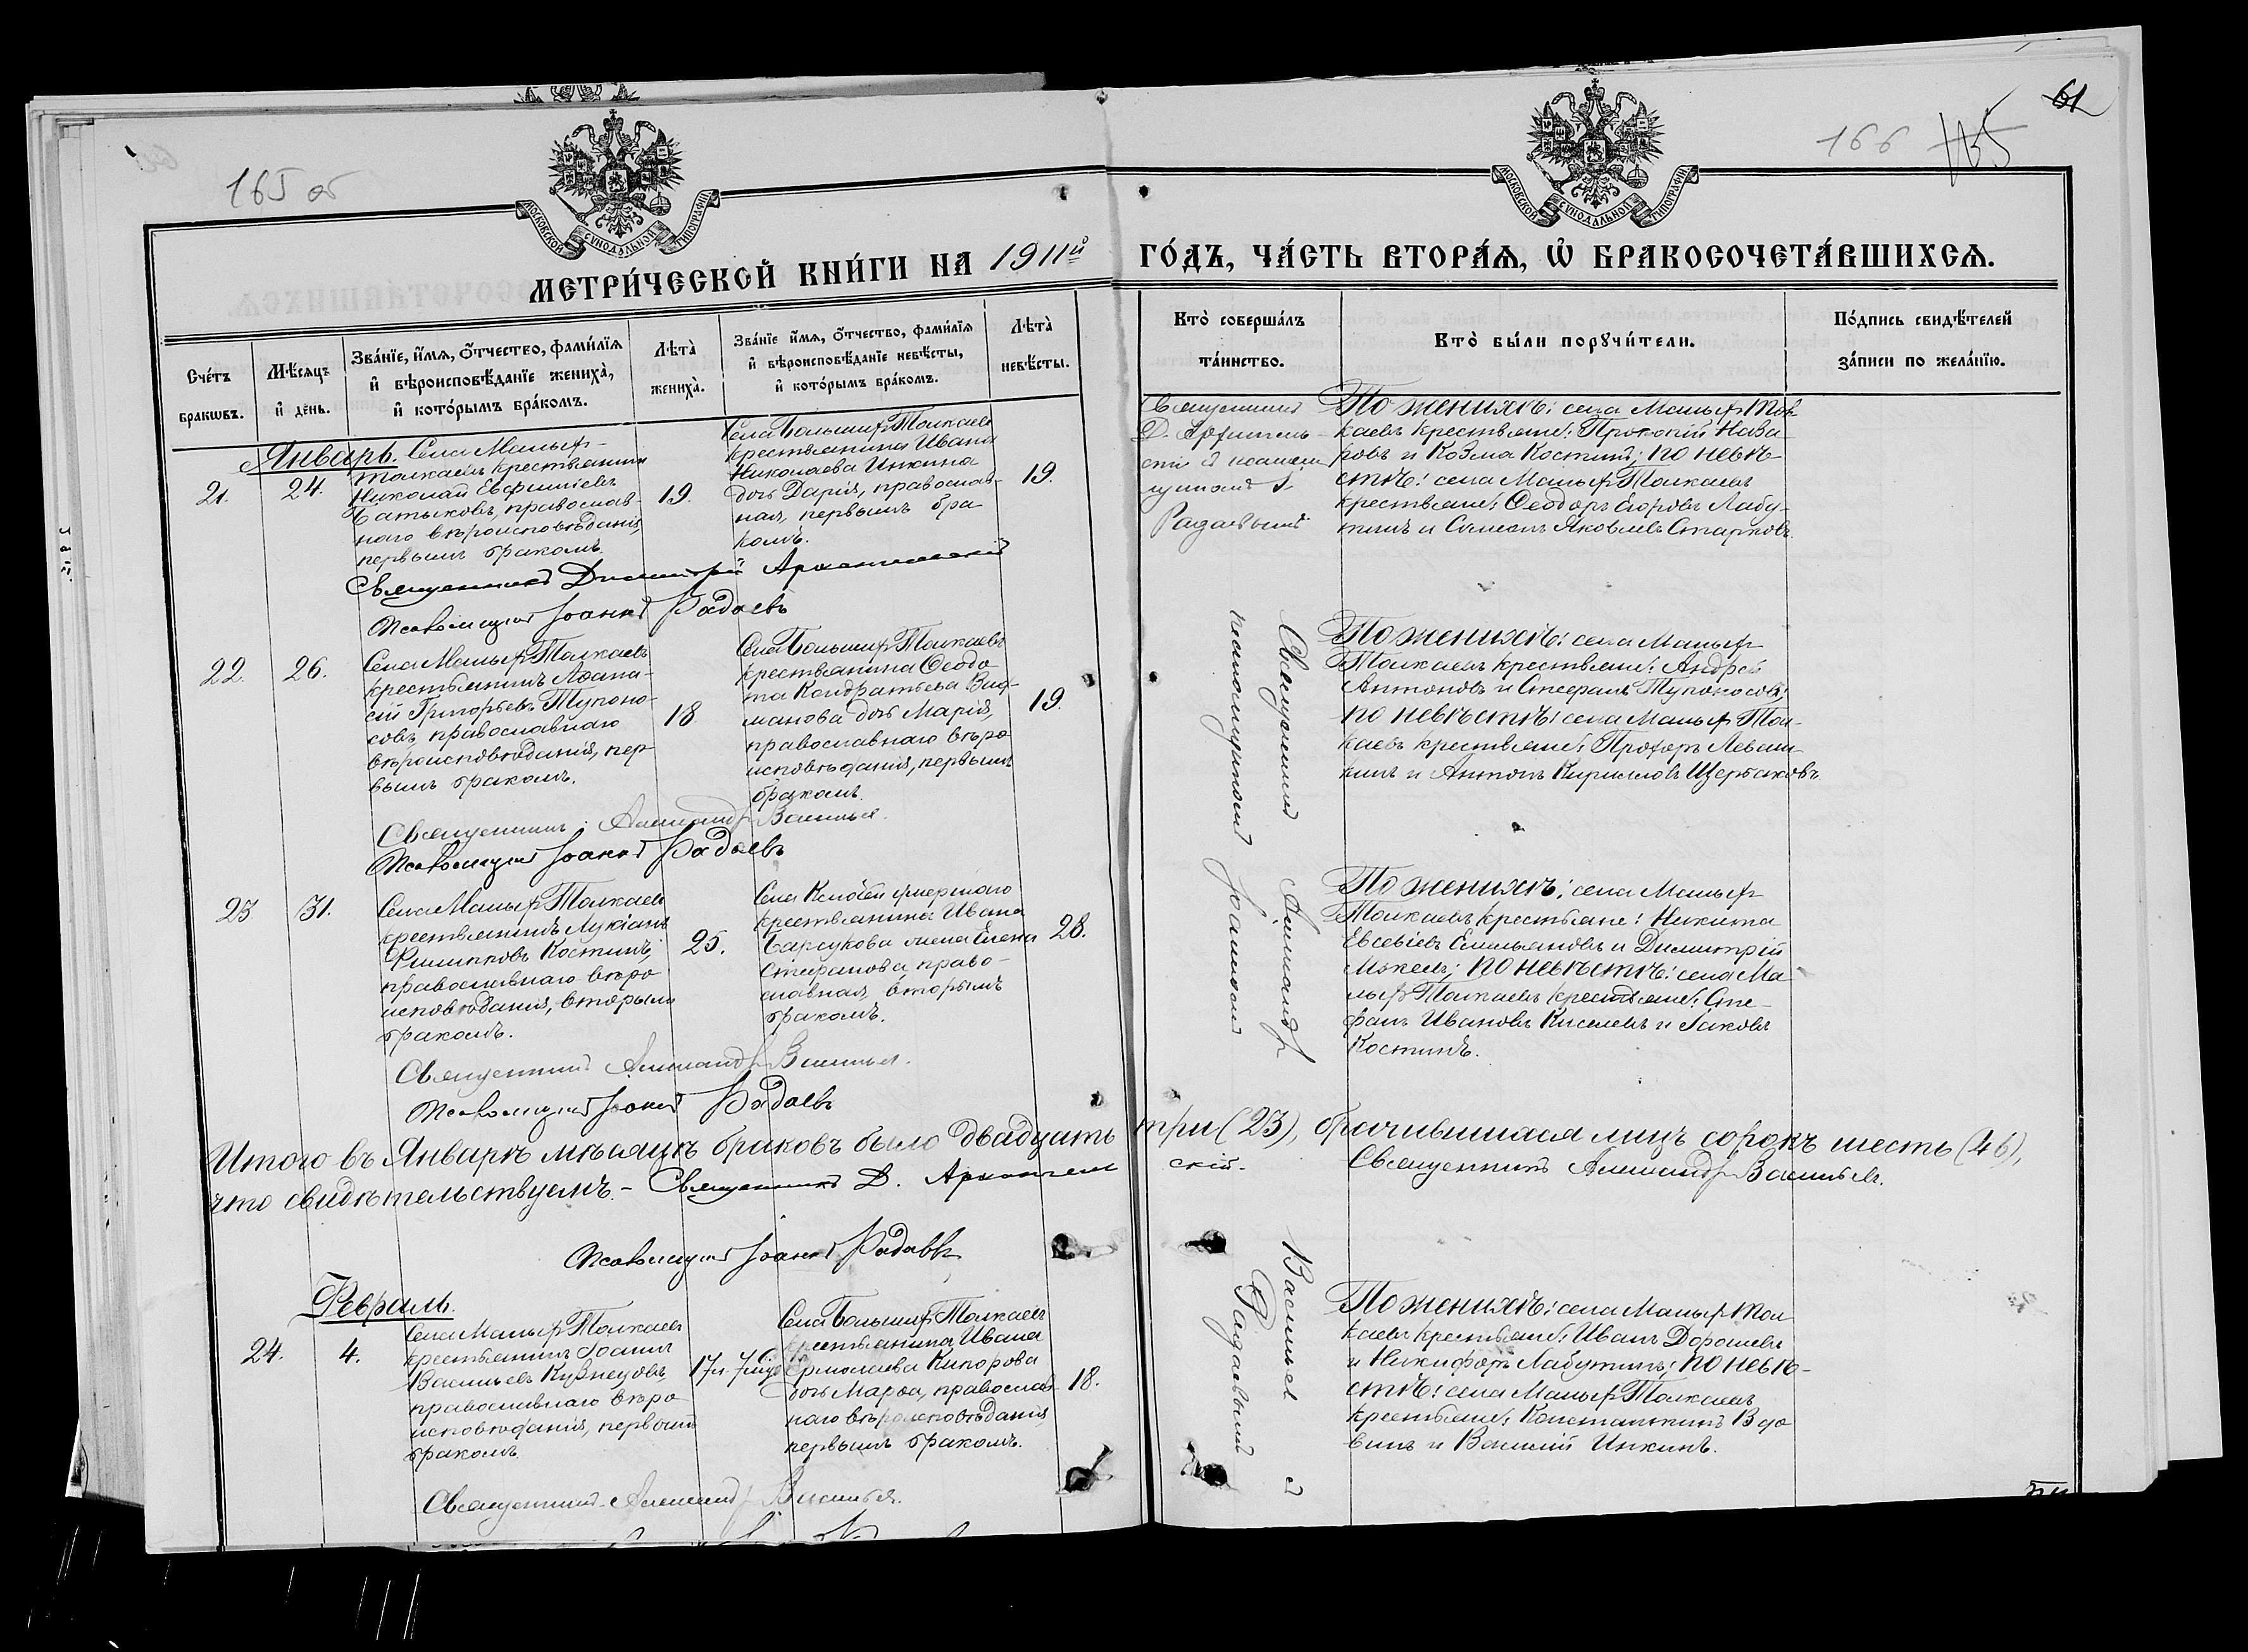 165 об
166 165
61
МОСКОВСКОЙ СѴНОДАЛЬНОЙ ТИПОГРАФІИ
МОСКОВСКОЙ СѴНОДАЛЬНОЙ ТИПОГРАФІИ
МЕТРИ́ЧЕСКОЙ КНИ́ГИ НА 1911й
ГО́ДЪ, ЧА́СТЬ ВТОРА́Ѧ, Ѡ҆ БРАКОСОЧЕТА́ВШИХСѦ.
Сче́тъ
браковъ.
Мѣ́сяцъ
и҆ де́нь.
Зва́нїе, и҆́мѧ, ѻ҆́тчество, фами́лїѧ
и҆ вѣроисповѣ́данїе жениха̀,
и҆ кото́рымъ бра́комъ.
Лѣта̀
жениха̀.
Зва́нїе и҆́мѧ, ѻ҆́тчество, фами́лїѧ
и҆ вѣроисповѣ́данїе невѣ́сты,
и҆ кото́рымъ бра́комъ.
Лѣта̀
невѣ́сты.
Кто̀ соверша́лъ
та́инство.
Кто̀ бы́ли порꙋчи́тели.
По́дпись свидѣ́телей
за́писи по жела́нїю.
Январь.
21.
24.
Села Малыхъ
Толкаевъ крестьянинъ
Николай Евфиміевъ
Батыковъ, православ-
наго вѣроисповѣданія,
первымъ бракомъ.
19.
Села Большихъ Толкаевъ
крестьянина Ивана
Николаева Инкина
дочь Дарія, православ-
ная, первымъ бра-
комъ.
19.
Священникъ
Д. Архангель-
скій и псалом
щикъ І.
Радаевъ
По женихѣ: села Малыхъ Тол-
каевъ крестьяне: Прокопій Наза-
ровъ и Козма Костинъ; по невѣ-
стѣ: села Малыхъ Толкаевъ
крестьяне: Ѳеодоръ Егоровъ Лабу-
тинъ и Симеонъ Яковлевъ Старковъ.
Священникъ Димитрій Архангельскій
Псаломщикъ Іоаннъ Радаевъ
22.
26.
Села Малыхъ Толкаевъ
крестьянинъ Аѳана-
сій Григорьевъ Тупоно-
совъ, православнаго
вѣроисповѣданія, пер-
вымъ бракомъ.
18
Села Большихъ Толкаевъ
крестьянина Ѳеодо-
та Кондратьева
дочь Марія,
православнаго вѣро-
исповѣданія, первымъ
бракомъ.
19.
По женихѣ: села Малыхъ
Толкаевъ крестьяне: Андрей
Антоновъ и Стефанъ Тупоносовъ;
по невѣстѣ: села Малыхъ Тол-
каевъ крестьяне: Прохоръ Леваш-
кинъ и Антонъ Кирилловъ Щербаковъ
Священникъ Александръ Васильевъ.
Псаломщикъ Іоаннъ Радаевъ
23
31.
Села Малыхъ Толкаевъ
крестьянинъ Лукіанъ
Филипповъ Костинъ,
православнаго вѣро-
исповѣданія, вторымъ
бракомъ.
25.
Села умершаго
крестьянина Ивана
Барсукова жена Елена
Стефанова, право-
славная, вторымъ
бракомъ.
28.
По женихѣ: села Малыхъ
Толкаевъ крестьяне: Никита
Евсевіевъ Емельяновъ и Димитрій
по невѣстѣ: села Ма-
лыхъ Толкаевъ крестьяне: Сте-
фанъ Ивановъ Киселевъ и Іаковъ
Костинъ.
Священникъ Александръ Васильевъ.
Псаломщикъ Іоаннъ Радаевъ
Священникъ Александръ Васильевъ и
псаломщикъ Іоаннъ Радаевъ
Итого въ Январѣ мѣсяцѣ браковъ было двадцать три (23), брачившихся лицъ сорокъ шесть (46),
что свидѣтельствуемъ. - Священникъ Д. Архангельскій.
Священникъ Александръ Васильевъ.
Псаломщикъ Іоаннъ Радаевъ
Февраль.
24.
4.
Села Малыхъ Толкаевъ
крестьянинъ Іоаннъ
Васильевъ Кузнецовъ,
православнаго вѣро-
исповѣданія, первымъ
бракомъ.
17л. 7
Села Большихъ Толкаевъ
крестьянина Ивана
Ермолаева Кипорова
дочь Марѳа, православ-
наго вѣроисповѣданія,
первымъ бракомъ.
18.
По женихѣ: села Малыхъ Тол-
каевъ крестьяне: Иванъ Дорошевъ
и Никифоръ Лабутинъ; по невѣ-
стѣ: села Малыхъ Толкаевъ
крестьяне: Константинъ Вдо-
винъ и Василій Инкинъ.
Священникъ Александръ Васильевъ.